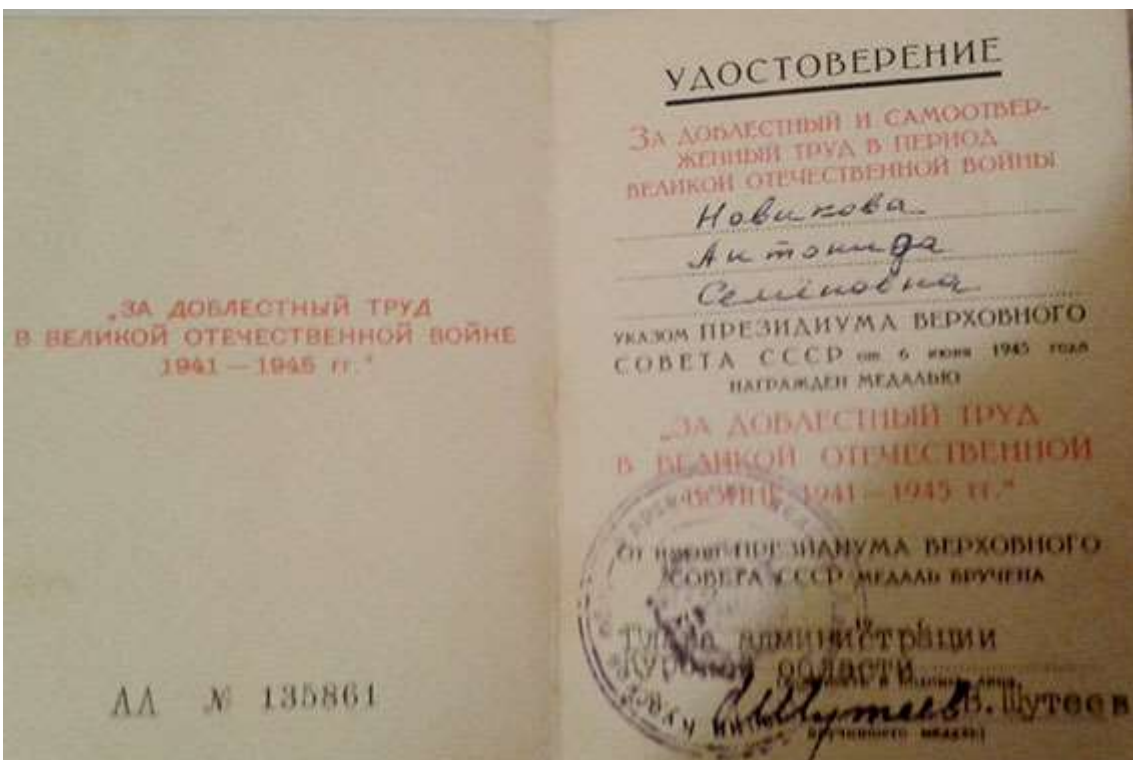 „ЗА ДОБЛЕСТНЫЙ ТРУД
В ВЕЛИКОЙ ОТЕЧЕСТВЕННОЙ ВОЙНЕ
1941 — 1945 гг.“
АА № 135861
УДОСТОВЕРЕНИЕ
ЗА ДОБЛЕСТНЫЙ И САМООТВЕР-
ЖЕННЫЙ ТРУД В ПЕРИОД
ВЕЛИКОЙ ОТЕЧЕСТВЕННОЙ ВОЙНЫ
Новикова
Антонида
Семёновна
УКАЗОМ ПРЕЗИДИУМА ВЕРХОВНОГО
СОВЕТА СССР от 6 июня 1945 года
НАГРАЖДЕН МЕДАЛЬЮ
„ЗА ДОБЛЕСТНЫЙ ТРУД
В ВЕЛИКОЙ ОТЕЧЕСТВЕННОЙ
ВОЙНЕ 1941 — 1945 гг.“
От имени ПРЕЗИДИУМА ВЕРХОВНОГО
СОВЕТА СССР МЕДАЛЬ ВРУЧЕНА
Глава администрации
Курской области
В. Шутеев
вручившего медаль)